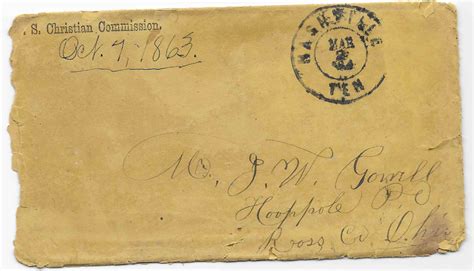 . S. Christian Commission.
Oct. 7, 1863.
NASHVILLE
MAR
TEN
J. W. Gowell
Hooppole P.O
Ross Co. Ohio